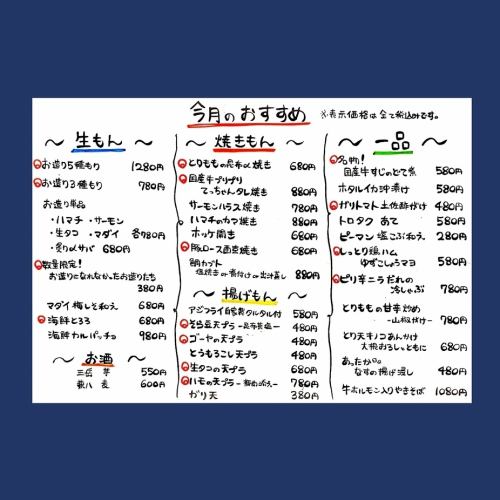 今月のおすすめ
※表示価格は全て税込みです。
〜 生もん 〜
お造り5種もり 1280円
お造り3種もり 780円
お造り単品
・ハマチ ・サーモン
・生タコ ・マダイ 各780円
・炙り〆サバ 680円
数量限定!
お造りになれなかったお造りたち
380円
マダイ梅しそ和え 680円
海鮮とろろ 680円
海鮮カルパッチョ 980円
〜 お酒 〜
三岳 芋 550円
兼八 麦 600円
〜 焼きもん 〜
とりももの昆布〆焼き 680円
国産牛プリプリ
てっちゃんタレ焼き 880円
サーモンハラス焼き 780円
ハマチのカマ焼き 880円
ホッケ開き 680円
豚ロース西京焼き 680円
鯛カブト
塩焼き or 煮付け or 出汁蒸し 880円
〜 揚げもん 〜
アジフライ自家製タルタル付 580円
そら豆天プラ 〜昆布茶塩〜 480円
ゴーヤの天プラ 480円
とうもろこし天プラ 480円
生タコの天プラ 680円
ハモの天プラ 780円
ガリ天 380円
〜 一品 〜
名物!
国産牛すじのどて煮 580円
ホタルイカ沖漬け 580円
ガリトマト土佐酢がけ 480円
トロタク あて 580円
ピーマン塩こぶ和え 280円
しっとり鶏ハム
ゆずこしょうマヨ 580円
ピリ辛ニラだれの
冷しゃぶ 780円
とりももの甘辛炒め
〜山椒がけ〜 780円
とり天キノコあんかけ
大根おろしとともに 680円
あったか
なすの揚げ浸し 480円
牛ホルモン入りやきそば 1080円